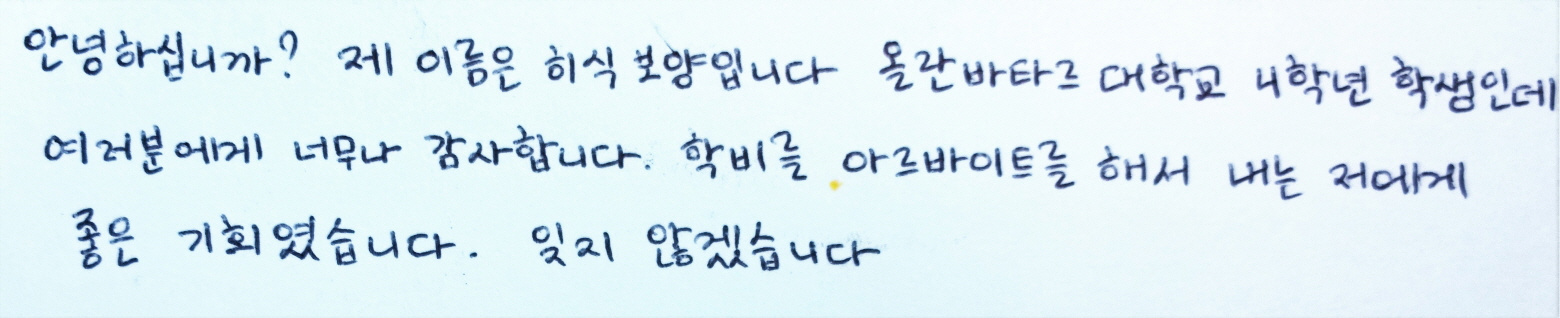 안녕하십니까? 제 이름은 히식보양입니다 올란바타르 대학교 4학년 학생인데
여러분에게 너무나 감사합니다. 학비를 아르바이트를 해서 내는 저에게
좋은 기회였습니다. 잊지 않겠습니다